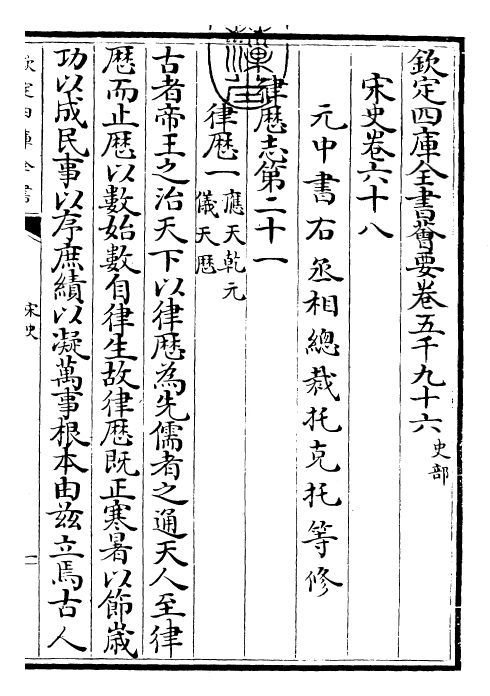 欽定四庫全書薈要卷五千九十六 史部
宋史卷六十八
元中書右丞相總裁托克托等修
律歴志第二十一
律歴一 應天乾元
儀天歴
古者帝王之治天下以律歴為先儒者之通天人至律
歴而止歴以數始數自律生故律歴既正寒暑以節歳
功以成民事以序庶績以凝萬事根本由兹立焉古人
欽定四庫全書
宋史
一